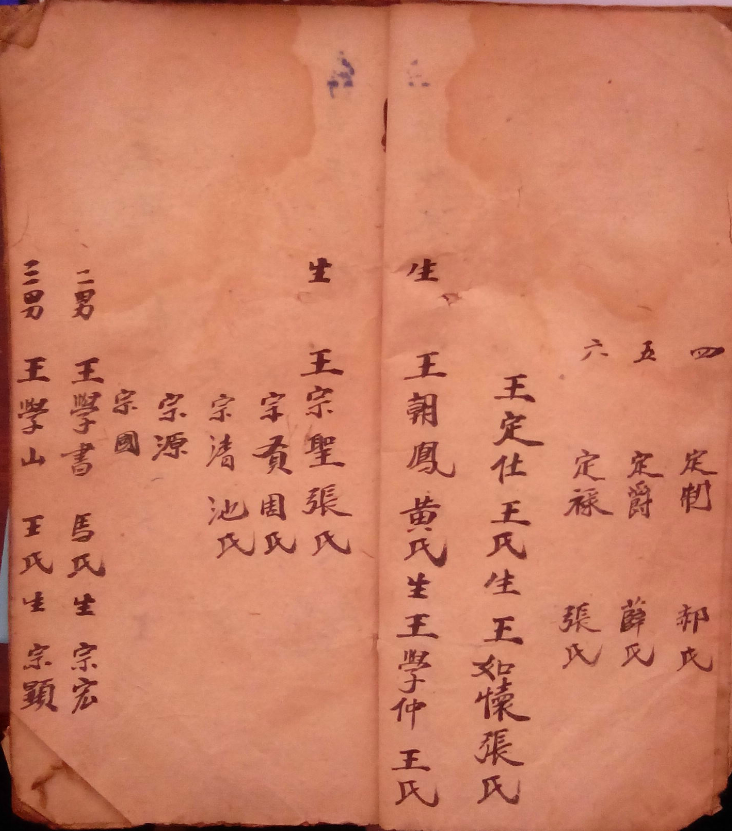 四 定制 郝氏
五 定爵 薛氏
六 定祿 張氏
王定仕 王氏 生 王如懷 張氏
生 王朝鳳 黃氏 生 王學仲 王氏
生 王宗聖 張氏
宗貢 周氏
宗清 池氏
宗源
宗國
二男 王學書 馬氏 生 宗宏
三男 王學山 王氏 生 宗顯